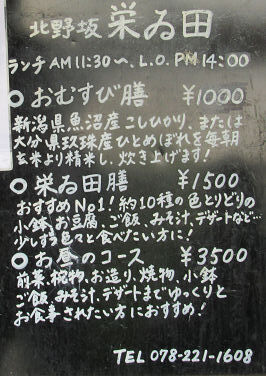 北野坂 栄ゐ田
ランチ AM 11:30〜、L.O. PM 14:00
○ おむすび膳 ¥1000
新潟県魚沼産こしひかり、または
大分県玖珠産ひとめぼれを毎朝
玄米より精米し、炊き上げます!
○ 栄ゐ田膳 ¥1500
おすすめNo1!約10種の色とりどりの
小鉢、お豆腐、ご飯、みそ汁、デザートなど…
少しずつ色々と食べたい方に!
○ お昼のコース ¥3500
前菜、椀物、お造り、焼物、小鉢
ご飯、みそ汁、デザートまでゆっくりと
お食事されたい方におすすめ!
TEL 078-221-1608